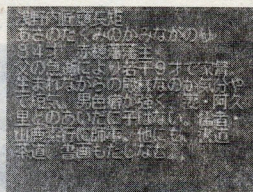 浅野内匠頭長矩
あさのたくみのかみながのり
34才 赤穂藩藩主
父の急逝により若干9才で家督
生まれながらの殿様なのか気
で短気 男色癖が強く 恋 阿久
里とのあいだに子はない 儒
山鹿素行に師事 他にも 水道
茶道 書画もたしなむ